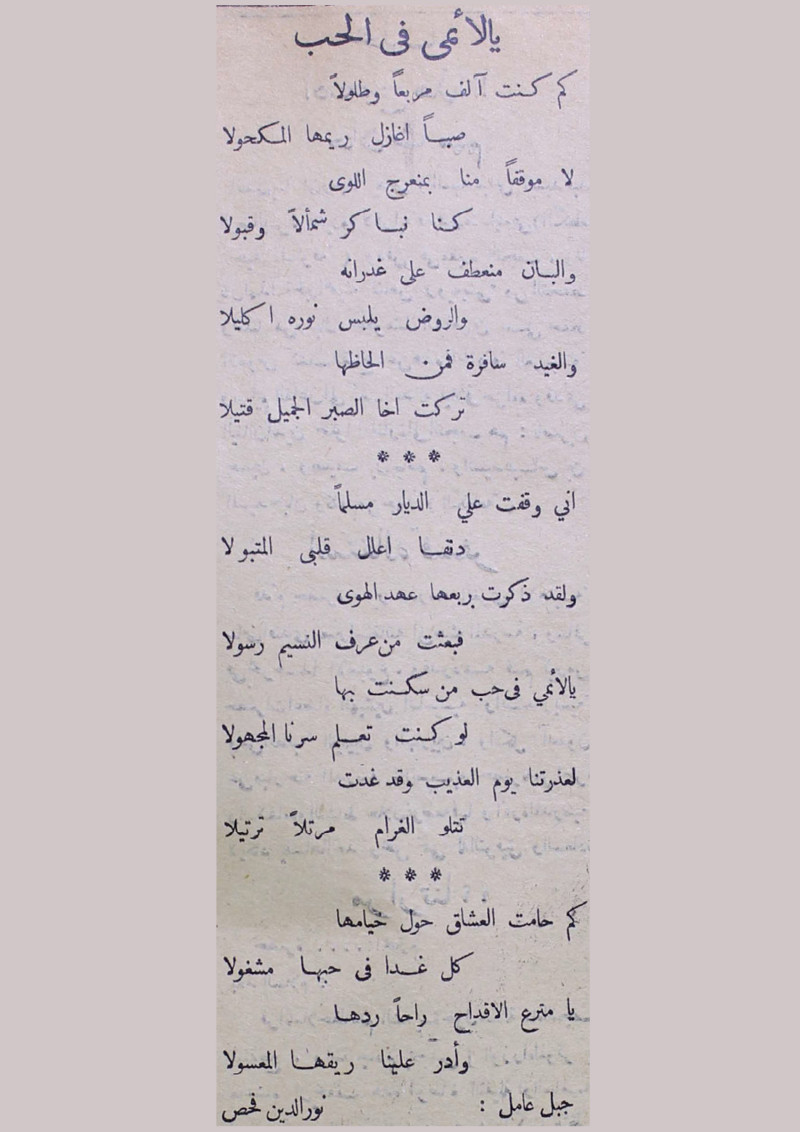 يالأئمى فى الحب
كم كنت آلف مربعاً وطلولاً
صباً اغازل ريمها المكحولا
لا موقفاً منا بمنعرج اللوى
كنا نباكر شمألاً وقبولا
والبان منعطف على غدرانه
والروض يلبس نوره اكليلا
والغيد سافرة فمن الحاظها
تركت اخا الصبر الجميل قتيلا
* * *
اني وقفت علي الديار مسلماً
دنفا اعلل قلبى المتبولا
ولقد ذكرت بربعها عهد الهوى
فبعثت من عرف النسيم رسولا
يالأئمي فى حب من سكنت بها
لو كنت تعلم سرنا المجهولا
لعذرتنا يوم العذيب وقد غدت
تتلو الغرام مرتلاً ترتيلا
* * *
كم حامت العشاق حول خيامها
كل غدا فى حبها مشغولا
يا مترع الاقداح راحاً ردها
وأدر علينا ريقها المعسولا
جبل عامل : نورالدين فحص